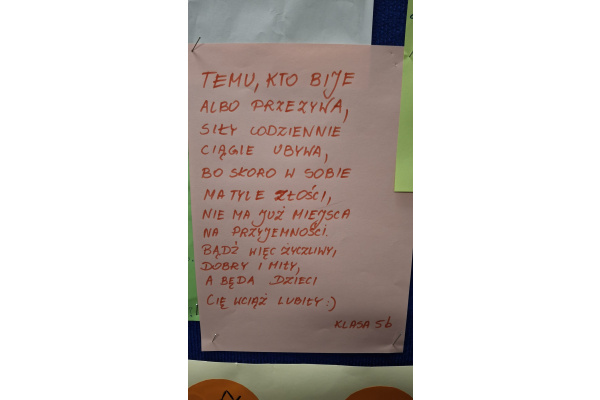 TEMU, KTO BIJE
ALBO PRZEZYWA,
SIŁY CODZIENNIE
CIĄGLE UBYWA,
BO SKORO W SOBIE
MA TYLE ZŁOŚCI,
NIE MA JUŻ MIEJSCA
NA PRZYJEMNOŚCI.
BĄDŹ WIĘC ŻYCZLIWY,
DOBRY I MIŁY,
A BĘDĄ DZIECI
CIĘ WCIĄŻ LUBIŁY :)
KLASA 5b